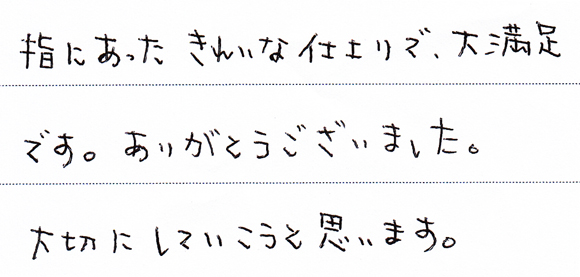 指にあった きれいな仕上りで、大満足
です。ありがとうございました。
大切にしていこうと思います。